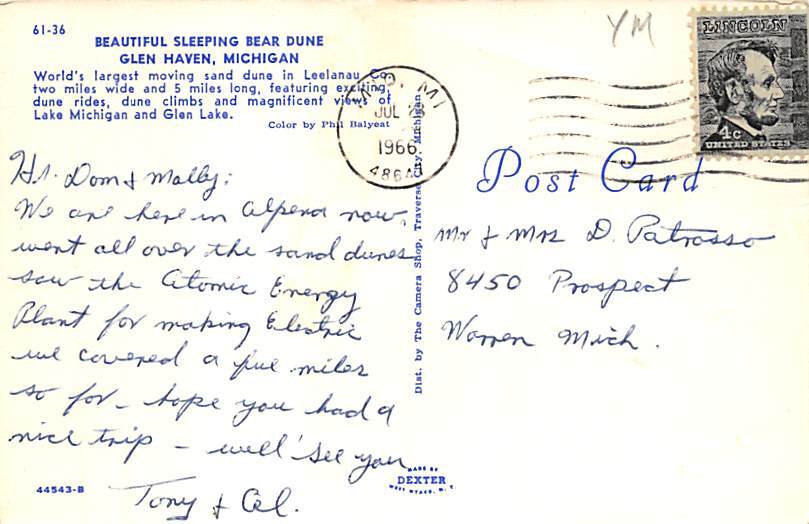 61-36
BEAUTIFUL SLEEPING BEAR DUNE
GLEN HAVEN, MICHIGAN
World's largest moving sand dune in Leelanau Co.
two miles wide and 5 miles long, featuring exciting
dune rides, dune climbs and magnificent views of
Lake Michigan and Glen Lake.
Color by Phil Balyeat
MIO, MI
JUL 28
1966
486
YM
LINCOLN
4c
UNITED STATES
Post Card
Hi. Dom & Molly;
We are here in Alpena now,
went all over the sand dunes
saw the Atomic Energy
Plant for making Electric
we covered a few miles
so far - hope you had a
nice trip - well see you
Tony & Cel.
Mr & Mrs D. Patrosso
8450 Prospect
Warren Mich.
Dist. by The Camera Shop, Traverse City, Michigan
44543-B
MADE BY
DEXTER
WEST NYACK, N.Y.